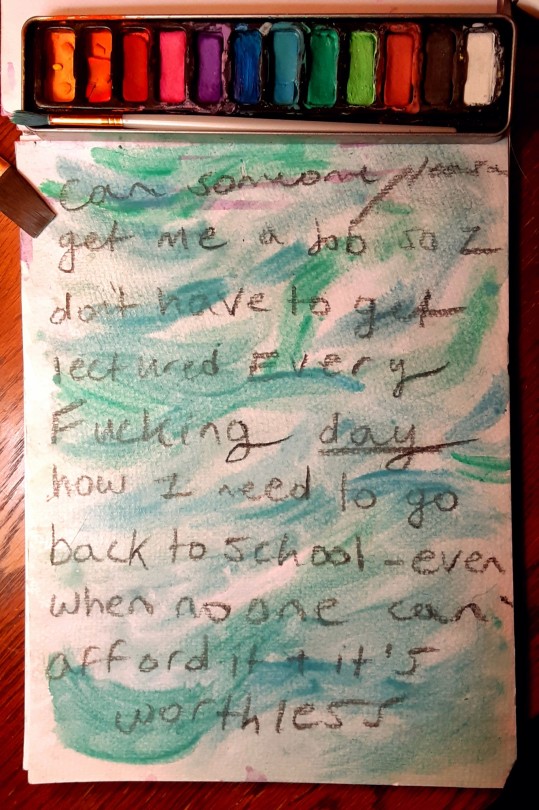 can someone please
get me a job so I
don't have to get
lectured Every
Fucking day
how I need to go
back to school - even
when no one can
afford it + it's
worthless